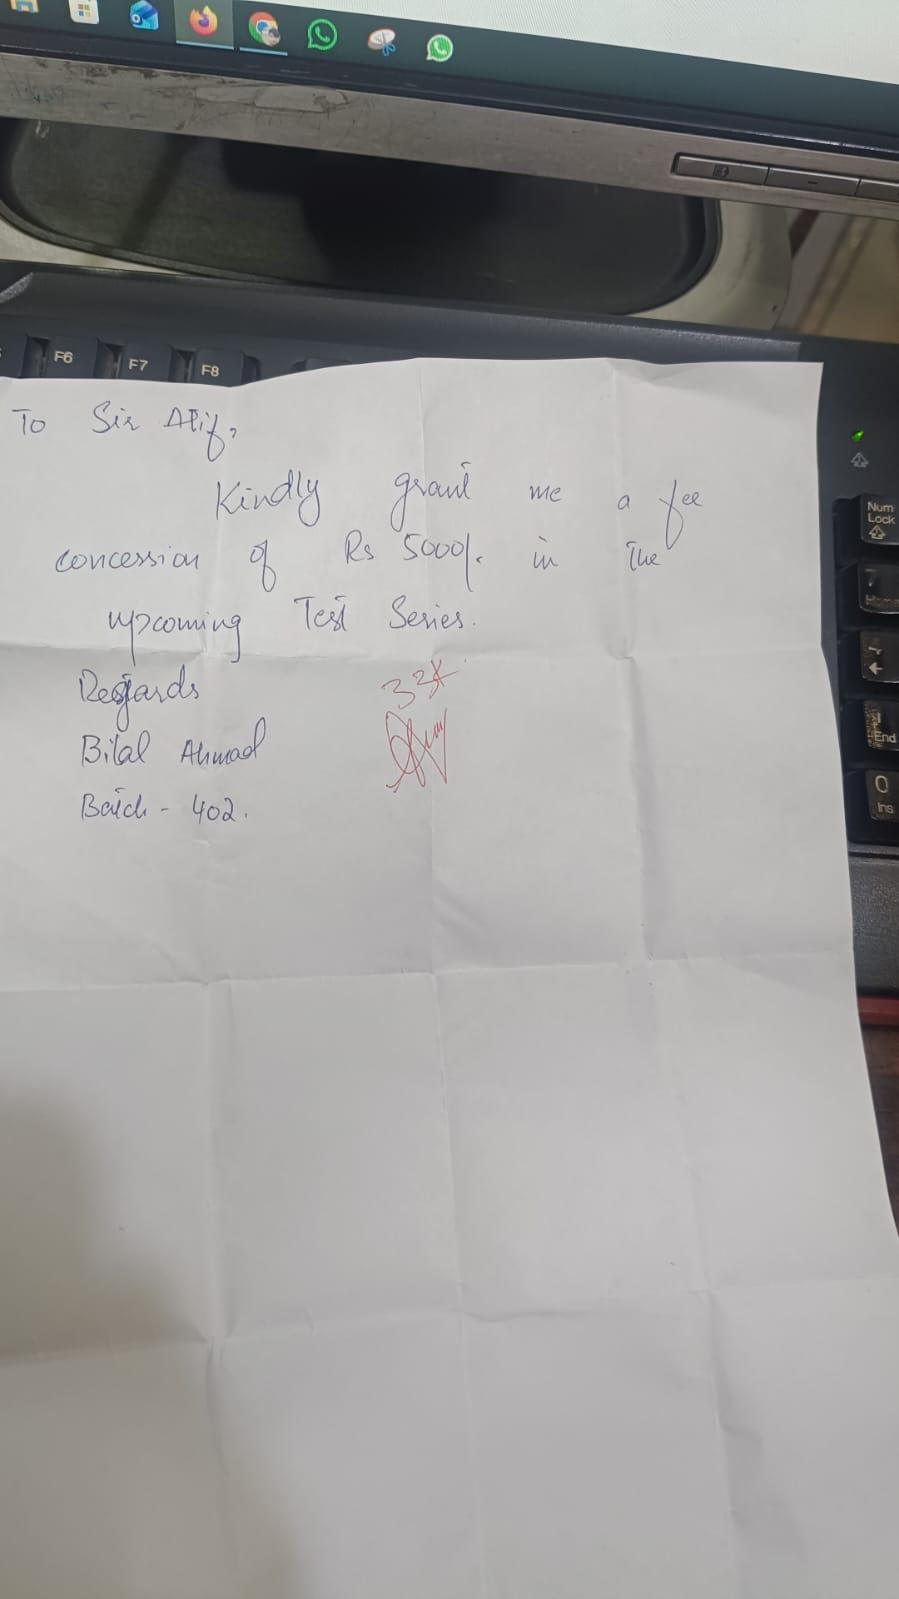 F6
F7
F8
To Sir Atif,
Kindly grant me a fee
concession of Rs 5000/- in the
upcoming Test Series.
Regards
Bilal Ahmad
Batch - 402.
33k
Num
Lock
7
Home
1
End
0
Ins